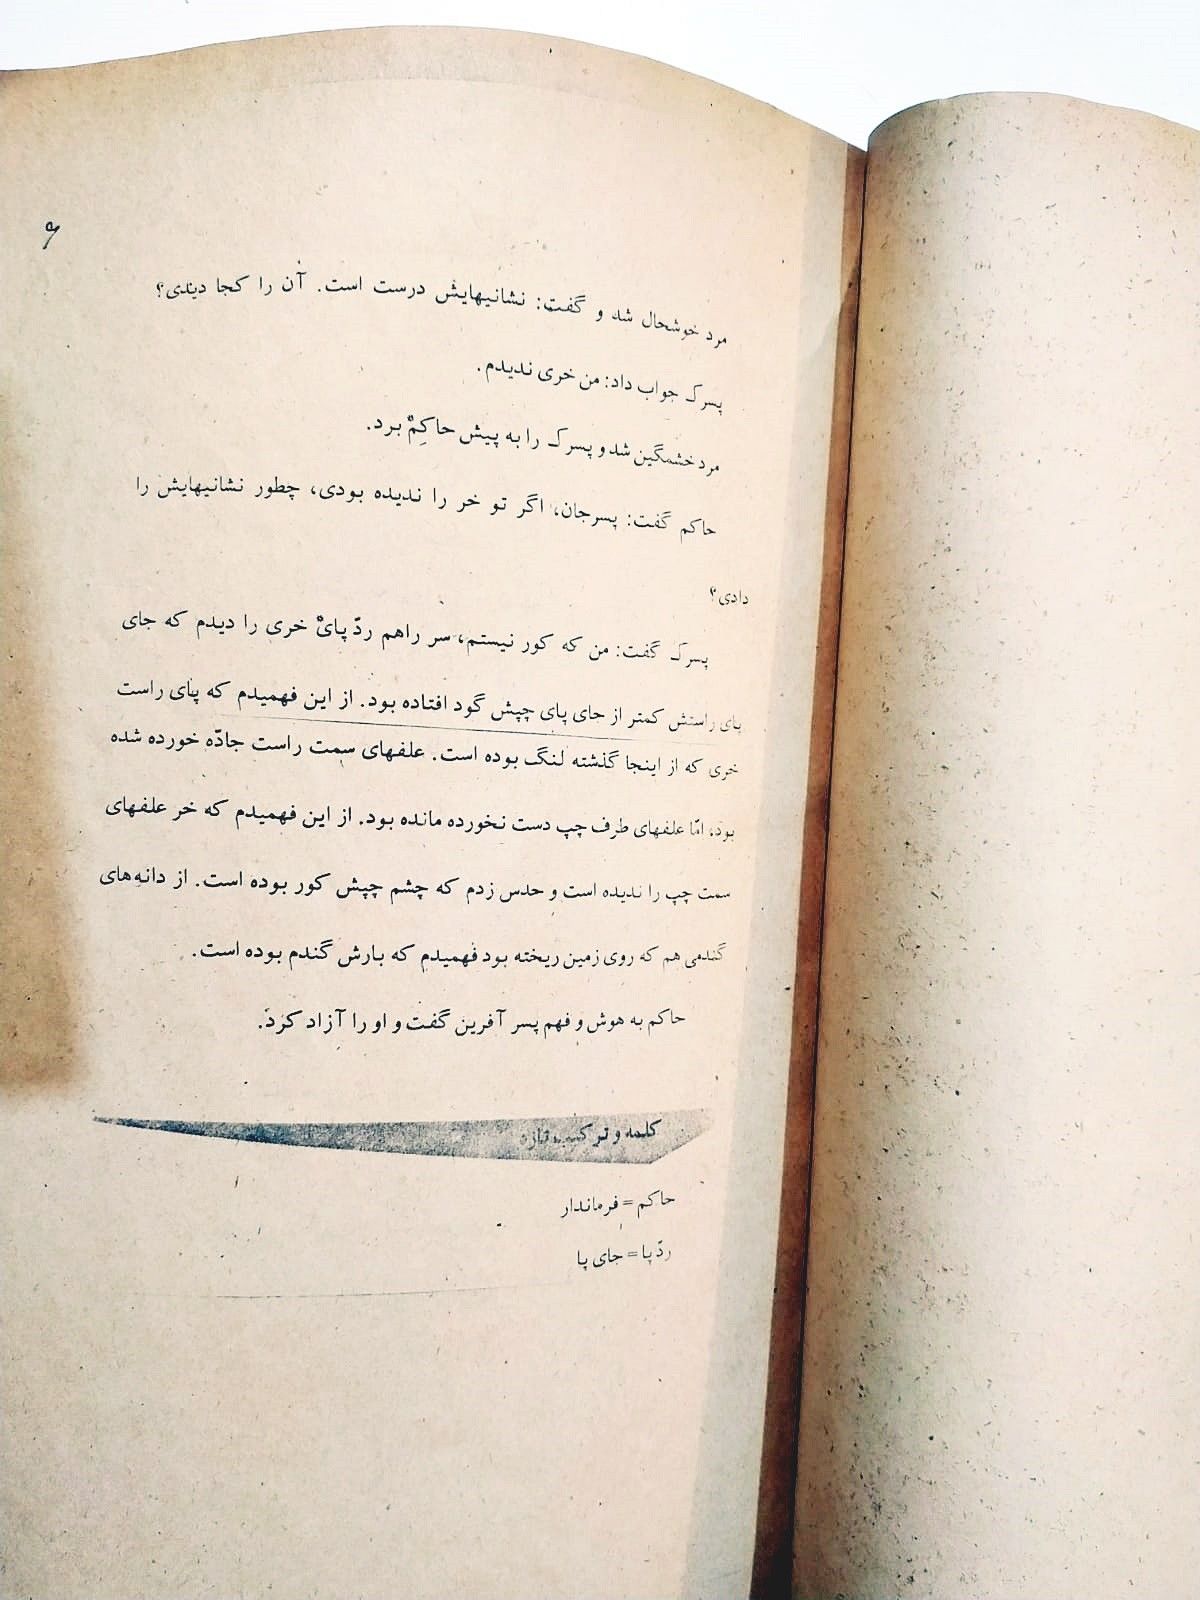 ۶
مرد خوشحال شد و گفت: نشانیهایش درست است. آن را کجا دیدی؟
پسرک جواب داد: من خری ندیدم.
مرد خشمگین شد و پسرک را به پیش حاکِمْ برد.
حاکم گفت: پسرجان، اگر تو خر را ندیده بودی، چطور نشانیهایش را
دادی؟
پسرک گفت: من که کور نیستم، سر راهم ردّ پایْ خری را دیدم که جای
پای راستش کمتر از جای پای چپش گود افتاده بود. از این فهمیدم که پای راست
خری که از اینجا گذشته لنگ بوده است. علفهای سمت راست جادّه خورده شده
بود، امّا علفهای طرف چپ دست نخورده مانده بود. از این فهمیدم که خر علفهای
سمت چپ را ندیده است و حدس زدم که چشم چپش کور بوده است. از دانه‌های
گندمی هم که روی زمین ریخته بود فهمیدم که بارش گندم بوده است.
حاکم به هوش و فهم پسر آفرین گفت و او را آزاد کرد.
کلمه و ترکیب تازه
حاکم = فرماندار
ردّ پا = جای پا